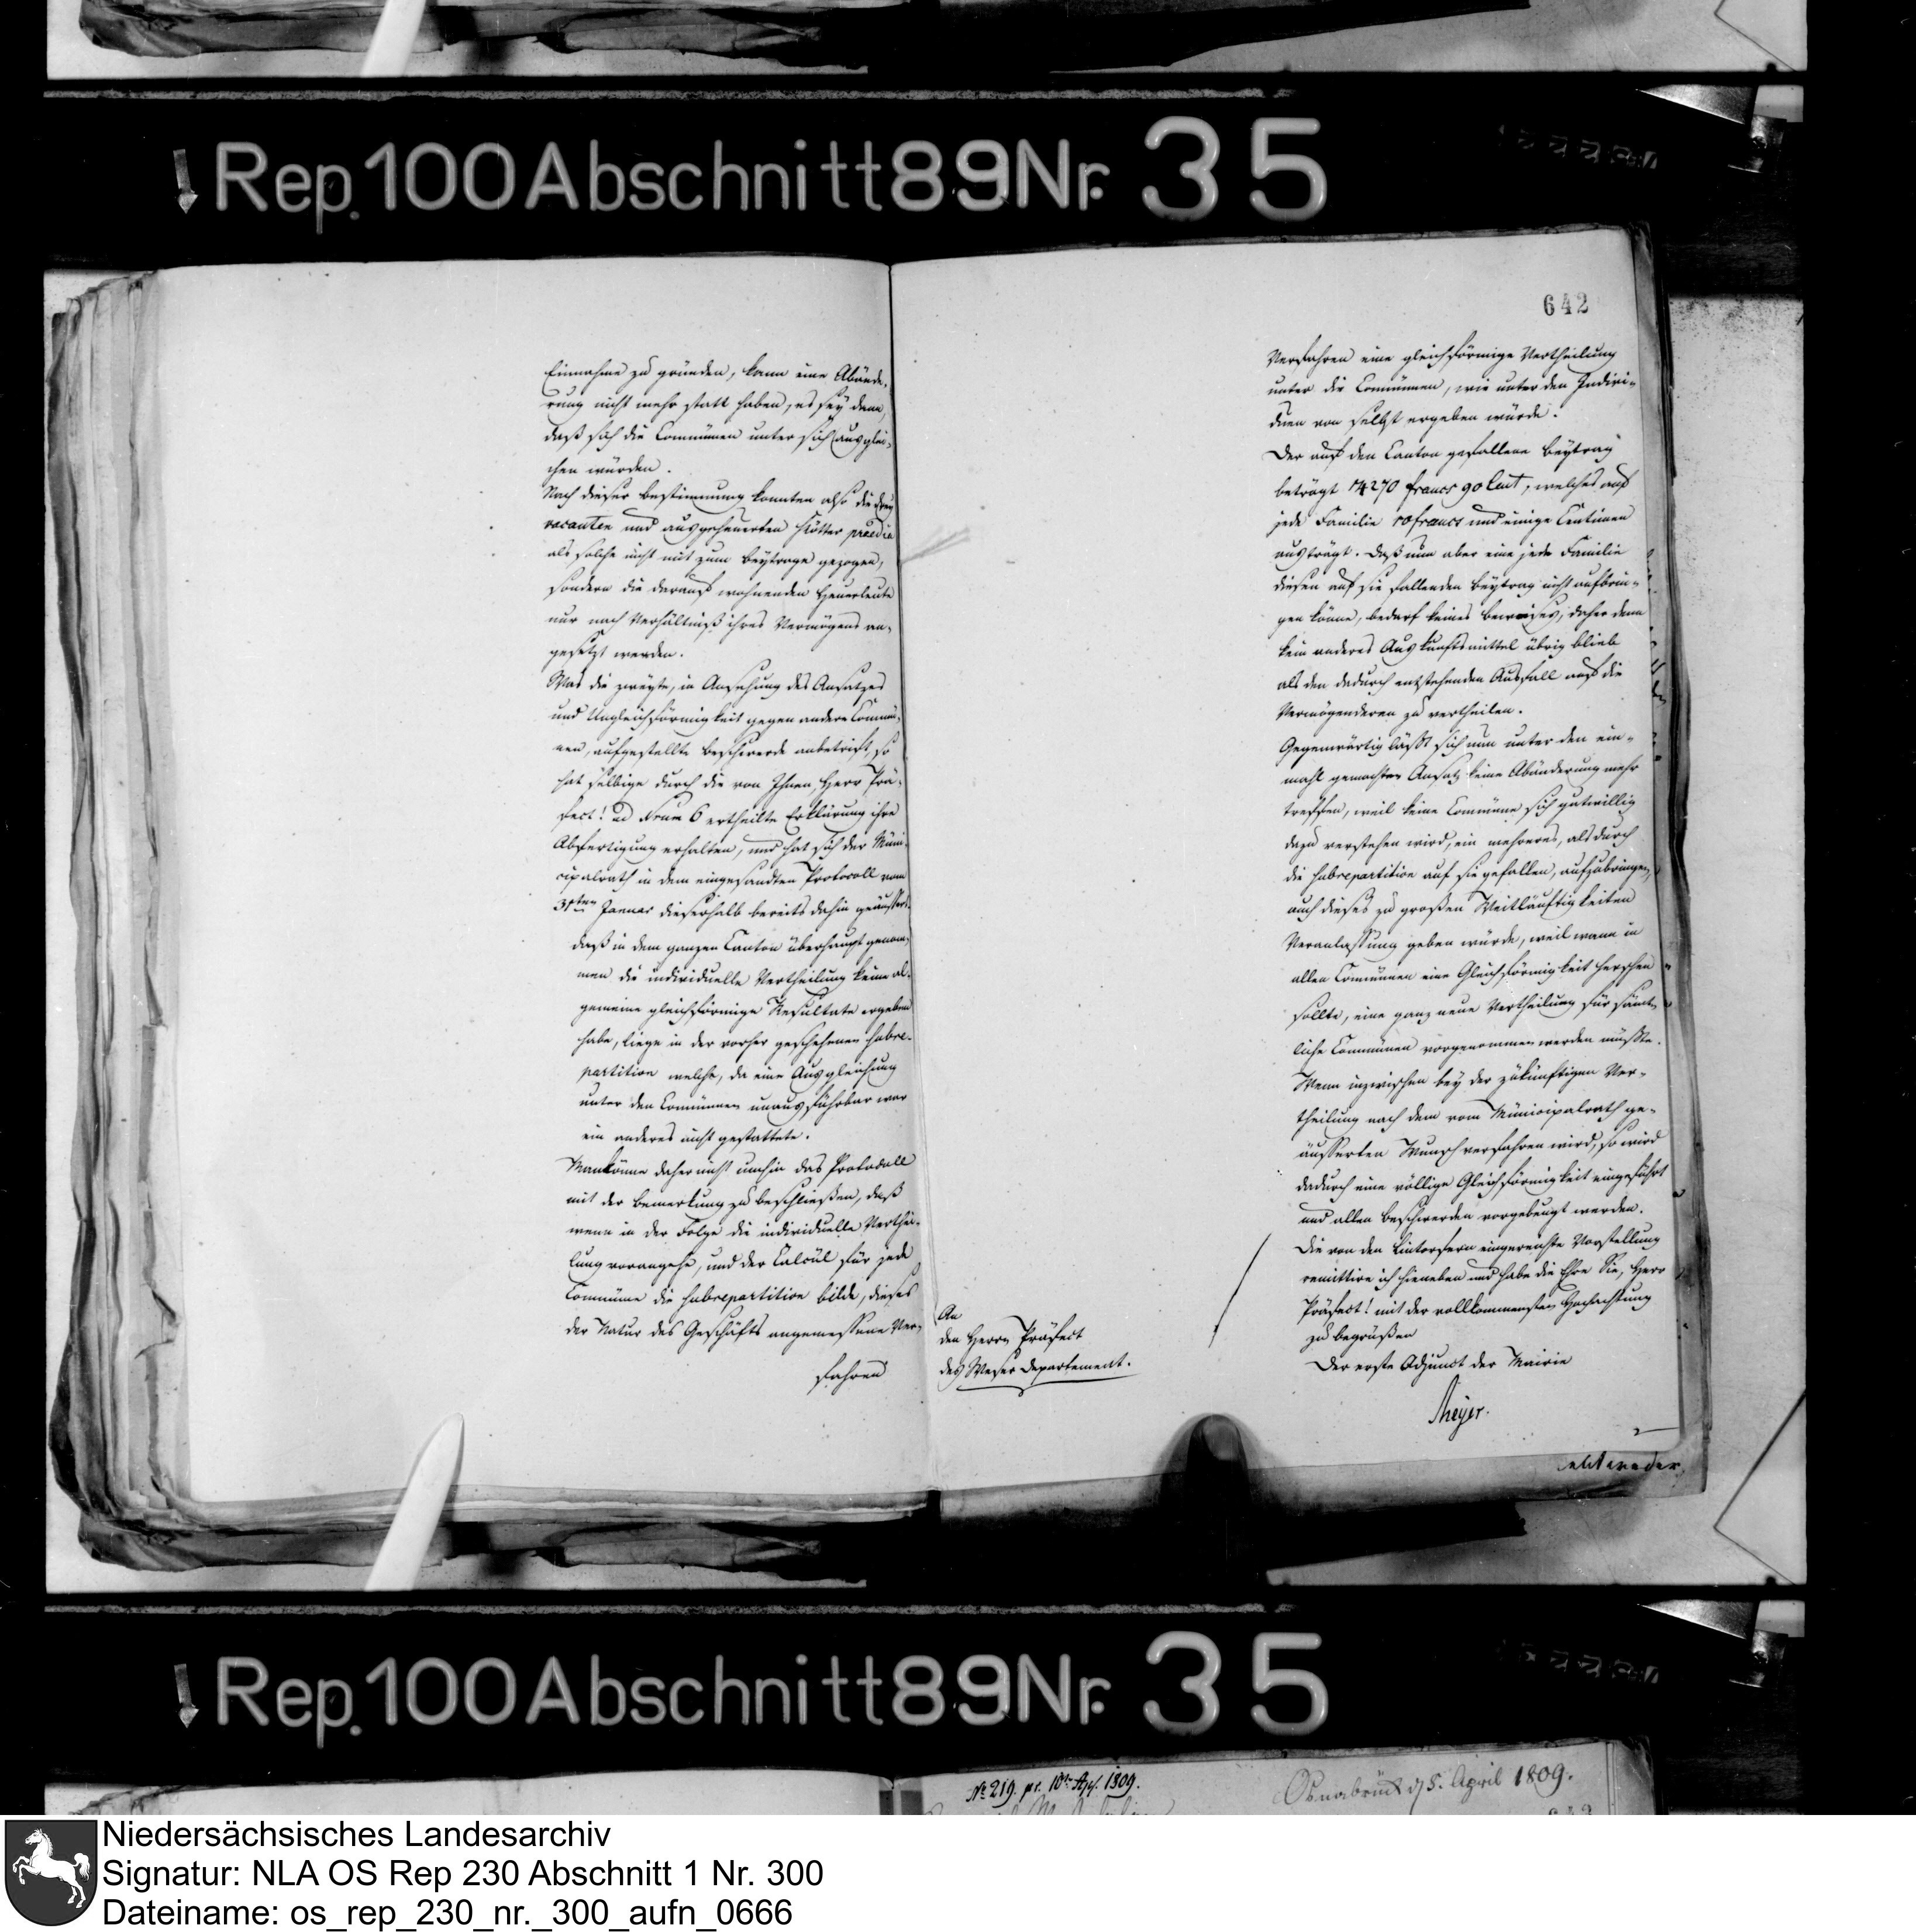 Rep. 100 Abschnitt 89 Nr. 35
Einnahme zu gründen, kann eine Abände-
rung nicht mehr statt haben, es sey denn,
daß sich die Communen unter sich ausglei-
chen würden.
Nach dieser Bestimmung konnten also die drey
vacanten und ausgeheuerten Kötter praedia
als solche nicht mit zum Beytrage gezogen,
sondern die darauf wohnenden Heuerleute
nur nach Verhältniß ihres Vermögens an-
gesetzt werden.
Was die zweyte, in Ansehung des Ansatzes
und Ungleichförmigkeit gegen andere Commu-
nen, aufgestellte Beschwerde anbetrift, so
hat selbige durch die von Ihnen, Herr Prä-
fect! ad Num 6 ertheilte Erklärung ihre
Abfertigung erhalten, und hat sich der Muni-
cipalrath in dem eingesandten Protocoll vom
31ten Januar dieserhalb bereits dahin geäussert:
daß in dem ganzen Canton überhaupt genom-
men die individuelle Vertheilung keine al-
gemeine gleichförmige Resultate ergeben
habe, liege in der vorher geschehenen Subre-
partition welche, da eine Ausgleichung
unter den Communen unausführbar war
ein anderes nicht gestattete.
Man könne daher nicht umhin das Protocoll
mit der Bemerkung zu beschließen, daß
wenn in der Folge die individuelle Verthei-
lung vorangehe, und der Calcül für jede
Commune die Subrepartition bilde, dieses
der Natur des Geschäfts angemessene Ver-
fahren
642
Verfahren eine gleichförmige Vertheilung
unter die Communen, wie unter den Indivi-
duen von selbst ergeben würde.
Der auf den Canton gefallene Beytrag
beträgt 14270 francs 90 Cent, welches auf
jede Familie 10 francs und einige Centimen
austrägt. Daß nun aber eine jede Familie
diesen auf sie fallenden Beytrag nicht aufbrin-
gen könne, bedarf keines Beweises, daher denn
kein anderes Auskunftsmittel übrig blieb
als den dadurch entstehenden Ausfall auf die
Vermögenderen zu vertheilen.
Gegenwärtig läßt sich nun unter den ein-
mahl gemachten Ansatz keine Abänderung mehr
treffen, weil keine Commune sich gutwillig
dazu verstehen wird, ein mehreres, als durch
die Subrepartition auf sie gefallen, aufzubringen,
auch dieses zu großen Weitläuftigkeiten
Veranlassung geben würde, weil wann in
allen Communen eine Gleichförmigkeit herschen
sollte, eine ganz neue Vertheilung für sämt-
liche Communen vorgenommen werden müßte.
Wenn inzwischen bey der zukünftigen Ver-
theilung nach dem vom Municipalrath ge-
äusserten Wunsch verfahren wird, so wird
dadurch eine völlige Gleichförmigkeit eingeführt
und allen Beschwerden vorgebeugt werden.
Die von den Lintorfern eingereichte Vorstellung
remittire ich hieneben und habe die Ehre Sie, Herr
Präfect! mit der vollkommensten Hochachtung
zu begrüßen
Der erste Adjunct der Mairie
Meyer.
An
den Herrn Präfect
des Weser Departement.
Rep. 100 Abschnitt 89 Nr. 35
No 219. pr. 10t Apr. 1809.
Osnabrück d 5. April 1809.
Niedersächsisches Landesarchiv
Signatur: NLA OS Rep 230 Abschnitt 1 Nr. 300
Dateiname: os_rep_230_nr._300_aufn_0666